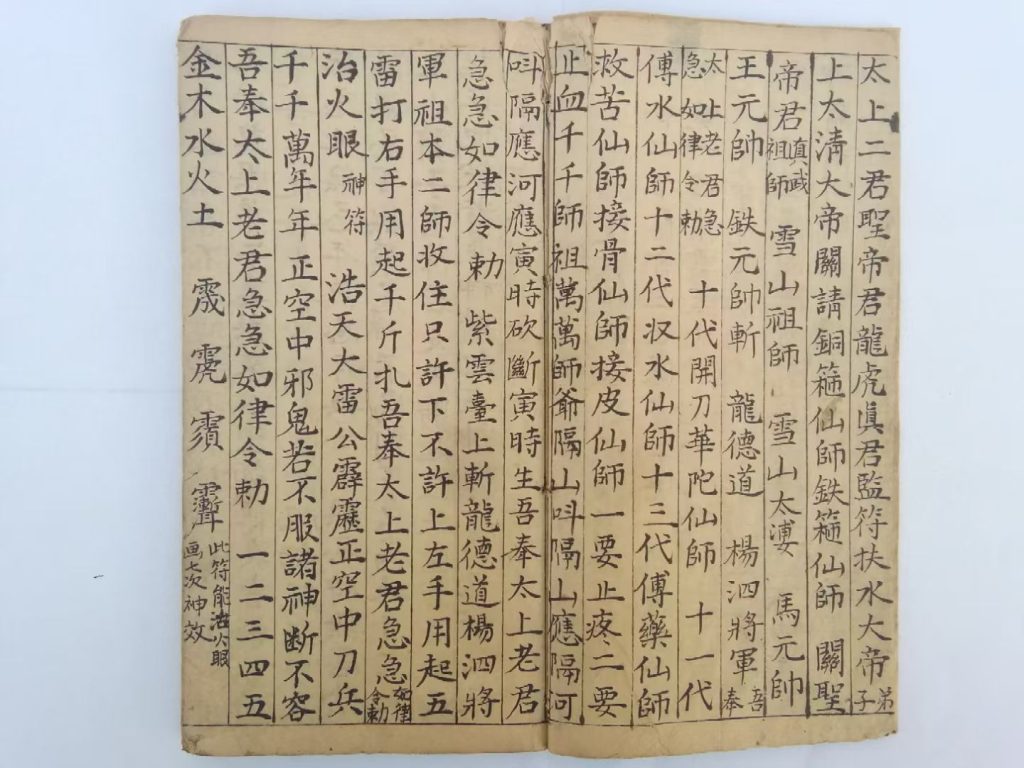 太上二君聖帝君龍虎眞君監符扶水大帝弟子
上太清大帝關請銅箍仙師鉄箍仙師 關聖
帝君真武祖師 雪山祖師 雪山太 馬元帥
王元帥 鉄元帥斬 龍德道 楊泗將軍吾奉
太上老君急急如律令勅 十代開刀華陀仙師 十一代
傅水仙師十二代収水仙師十三代傅藥仙師
救苦仙師接骨仙師接皮仙師一要止疼二要
止血千千師祖萬萬師爺隔山呌隔山應隔河
呌隔應河應寅時砍斷寅時生吾奉太上老君
急急如律令勅 紫雲臺上斬龍德道楊泗將
軍祖本二師收住只許下不許上左手用起五
雷打右手用起千斤扎吾奉太上老君急急如律令勅
治火眼神符 浩天大雷公霹靂正空中刀兵
千千萬年年正空中邪鬼若不服諸神断不容
吾奉太上老君急急如律令勅 一二三四五
金木水火土 此符能治火眼画七次神效